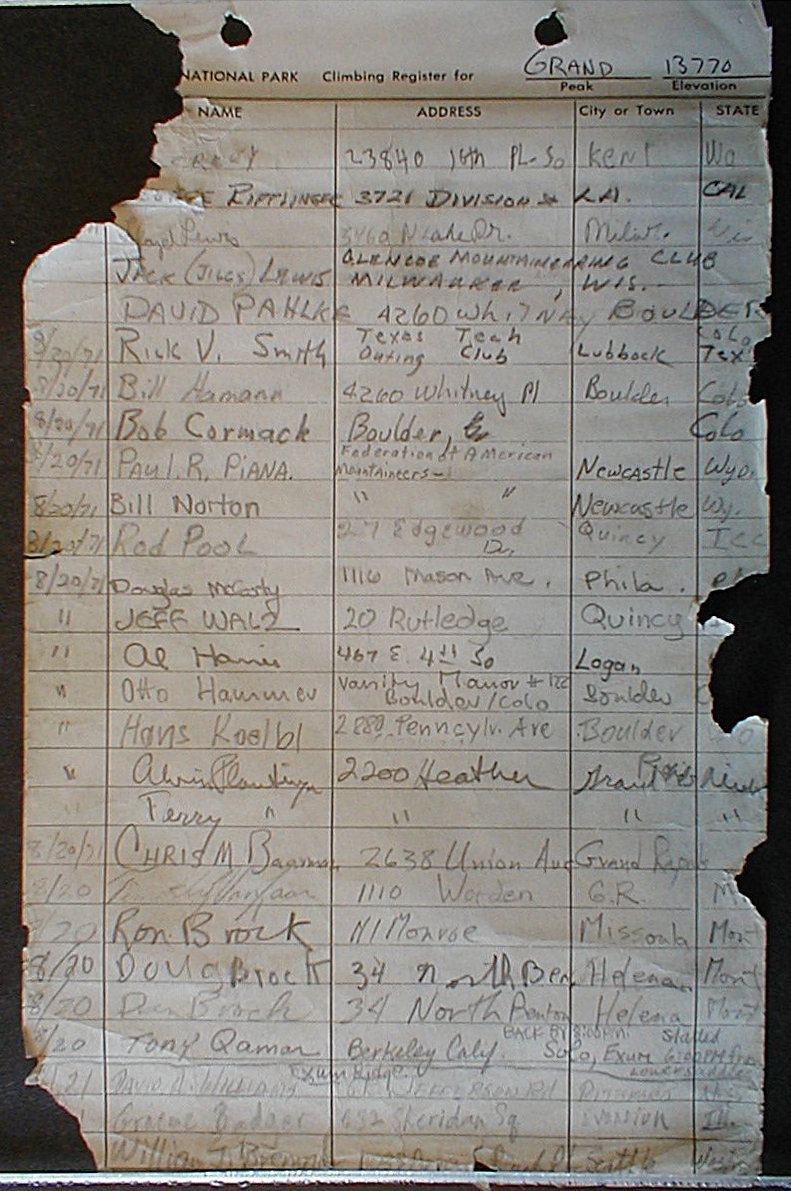 NATIONAL PARK Climbing Register for GRAND 13770
Peak Elevation
NAME ADDRESS City or Town STATE
23840 16th PL. So Kent Wa
RIFFLINGER 3721 DIVISION St LA. CAL
Lewis N Lake Dr. Milw.
JACK (JILGS) LEWIS GLENCOE MOUNTAINEERING CLUB
MILWAUKEE, WIS.
DAVID PAHLKE 4260 Whitney BOULDER
Colo
8/20/71 Rick V. Smith Texas Tech Outing Club Lubbock Tex
8/20/71 Bill Hamann 4260 Whitney Pl Boulder Colo
8/20/71 Bob Cormack Boulder, Colo
8/20/71 PAUL R. PIANA. Federation of American Mountaineers- Newcastle Wyo.
8/20/71 Bill Norton " " Newcastle Wy.
8/20/71 Rod Pool 27 Edgewood Quincy
8/20/71 Douglas McCarty 1116 Mason Ave. Phila.
" JEFF WALZ 20 Rutledge Quincy
" Al Harris 467 E. 4th So Logan
" Otto Hammer Varsity Manor # 122 Boulder/Colo Boulder
" Hans Koelbl 2889 Pennsylv. Ave Boulder
" Alvin Plantinga 2200 Heather Grand
" Terry " " " "
8/20/71 CHRIS M 2638 Union Ave Grand Rapids
8/20 1110 Worden G.R. M
8/20 Ron Brock N1 Monroe Missoula Mont
8/20 Doug Brock 34 North Ben Helena Mont
8/20 Dan Brock 34 North Benton Helena Mont
8/20 Tony Qamar Berkeley Calif. BACK BY 8:00PM! Solo, Exum Started 6:00PM from lower saddle
Exum Ridge
21 DAVID A. WILLIAMS JEFFERSON
Graeme Badger 632 Sheridan Sq Evanston Ill.
William J. Seattle